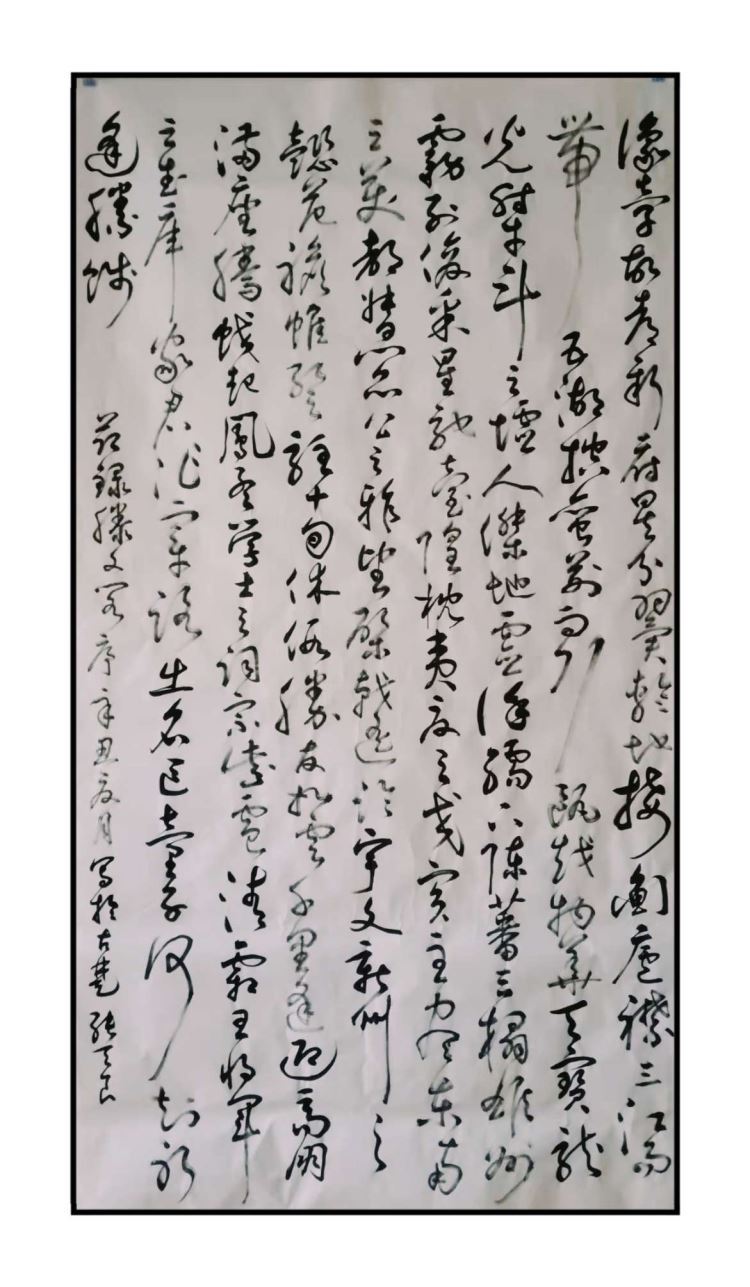 豫章故郡新府星分翼軫地接衡廬襟三江而
帶五湖控蠻荊而引甌越物華天寶龍
光射牛斗之墟人傑地靈徐孺下陳蕃之榻雄州
霧列俊采星馳臺隍枕夷夏之交賓主盡東南
之美都督閻公之雅望棨戟遙臨宇文新州之
懿范襜帷暫駐十旬休假勝友如雲千里逢迎高朋
滿座騰蛟起鳳孟學士之詞宗紫電清霜王將軍
之武庫家君作宰路出名區童子何知躬
逢勝餞
節錄滕王閣序辛丑夏月寫於古楚張天